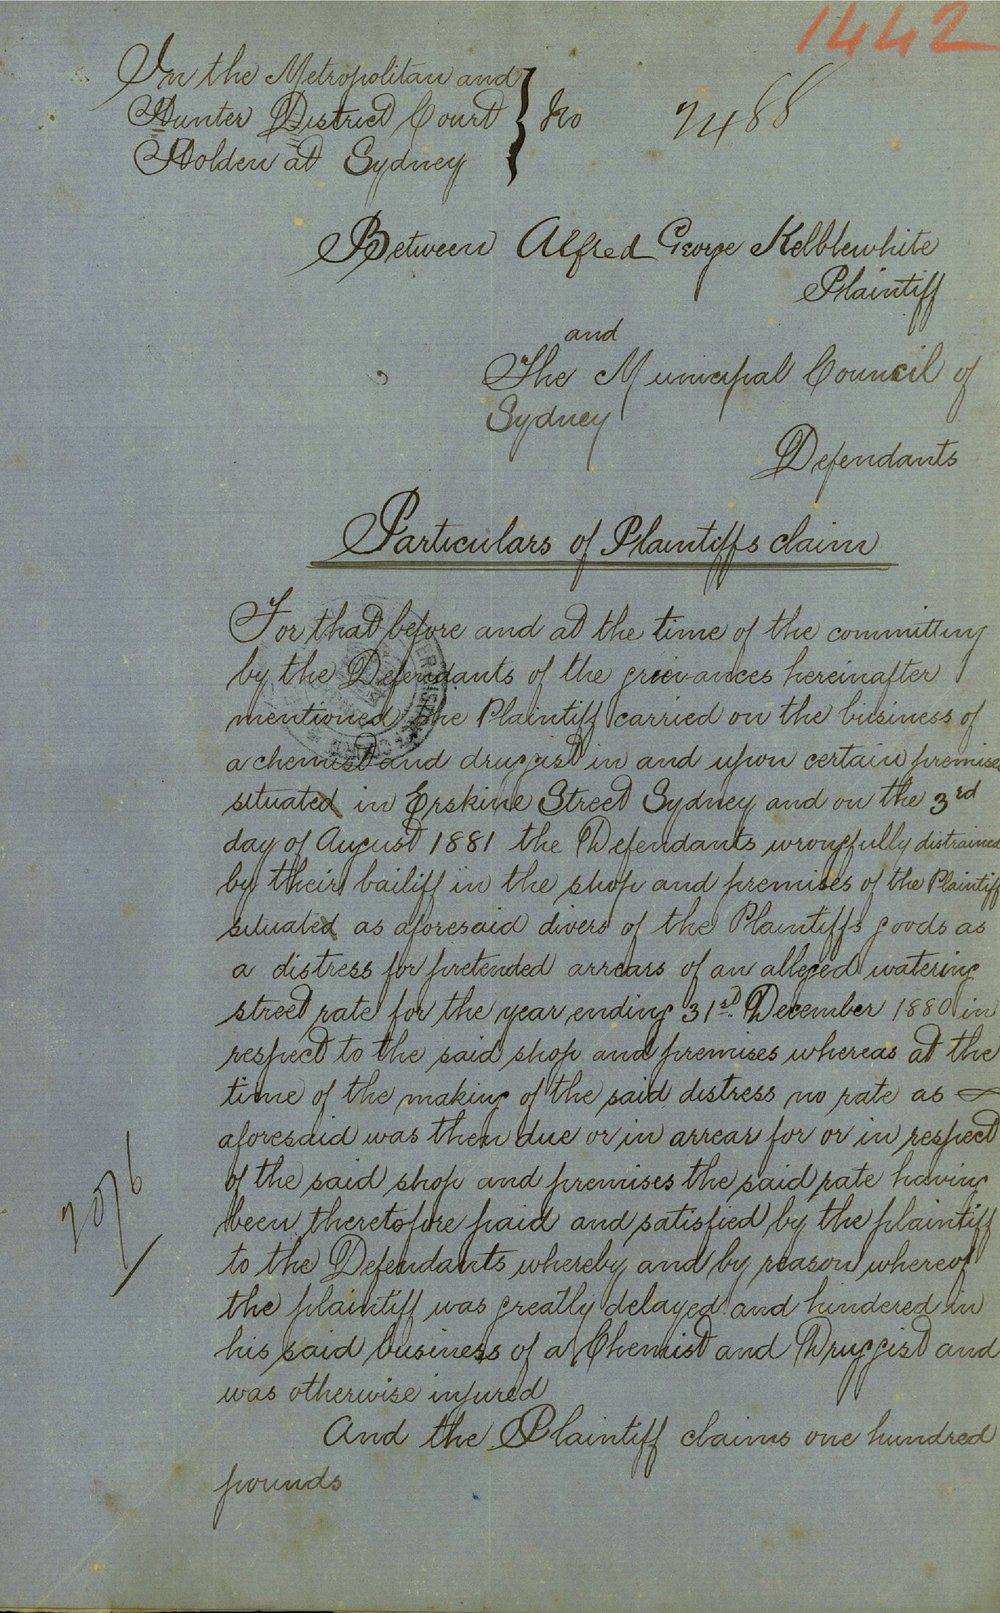 1442
In the Metropolitan and
Hunter District Court } No 7488
Holden at Sydney
Between Alfred George Kelblewhite
Plaintiff
and
The Municipal Council of
Sydney
Defendants
Particulars of Plaintiffs claim
For that before and at the time of the committing
by the Defendants of the grievances hereinafter
mentioned the Plaintiff carried on the business of
a chemist and druggist in and upon certain premises
situated in Erskine Street Sydney and on the 3rd
day of August 1881 the Defendants wrongfully distrained
by their bailiff in the shop and premises of the Plaintiff
situated as aforesaid divers of the Plaintiffs goods as
a distress for pretended arrears of an alleged watering
street rate for the year ending 31st. December 1880 in
respect to the said shop and premises whereas at the
time of the making of the said distress no rate as
aforesaid was then due or in arrear for or in respect
of the said shop and premises the said rate having
been theretofore paid and satisfied by the plaintiff
to the Defendants whereby and by reason whereof
the plaintiff was greatly delayed and hindered in
his said business of a Chemist and Druggist and
was otherwise injured
And the Plaintiff claims one hundred
pounds